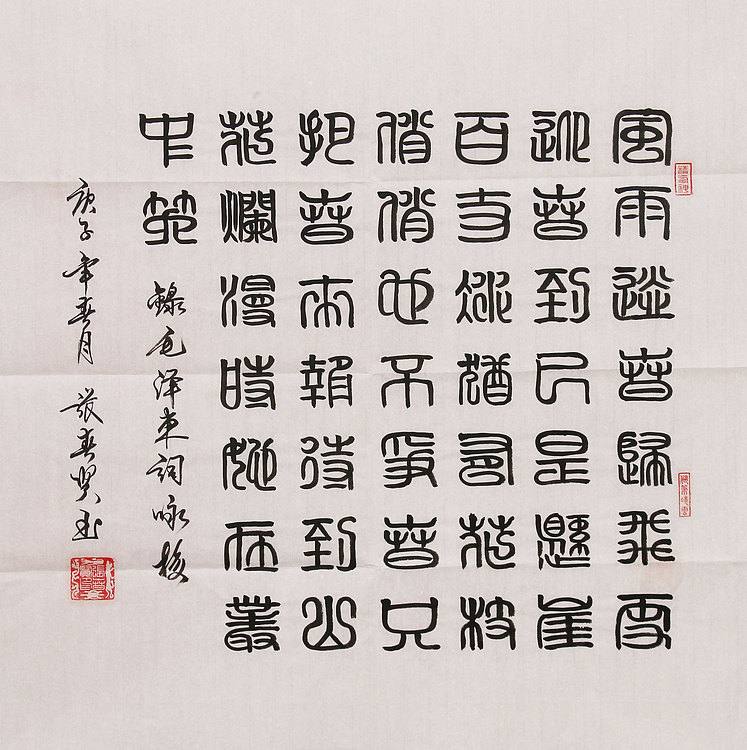 風雨送春歸飛雪
迎春到已是懸崖
百丈冰猶有花枝
俏俏也不爭春只
把春來報待到山
花爛漫時她在叢
中笑
錄毛泽東詞咏梅
庚子年春月 張春书